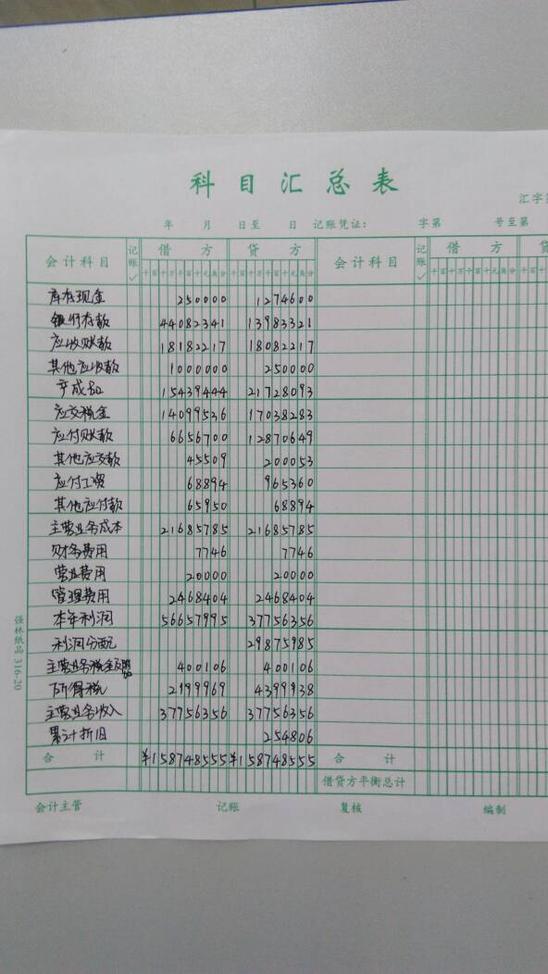 科目汇总表
汇字第
年 月 日至 日 记账凭证: 字第 号至第
会计科目 记账✓ 借方 贷方 会计科目 记账✓ 借方 贷
千百十万千百十元角分 千百十万千百十元角分
库存现金 250000 1274600
银行存款 44082341 13983321
应收账款 18182217 18082217
其他应收款 1000000 250000
产成品 15439444 21728093
应交税金 14099536 17038283
应付账款 6656700 12870649
其他应交款 45509 200053
应付工资 68894 965360
其他应付款 65950 68894
主营业务成本 21685785 21685785
财务费用 7746 7746
营业费用 20000 20000
管理费用 2468404 2468404
本年利润 56657995 37756356
利润分配 29875985
主营业务税金及附加 400106 400106
所得税 2199969 4399938
主营业务收入 37756356 37756356
累计折旧 254806
合计 ¥158748555 ¥158748555 合计
借贷方平衡总计
会计主管 记账 复核 编制
强林纸品 316-20